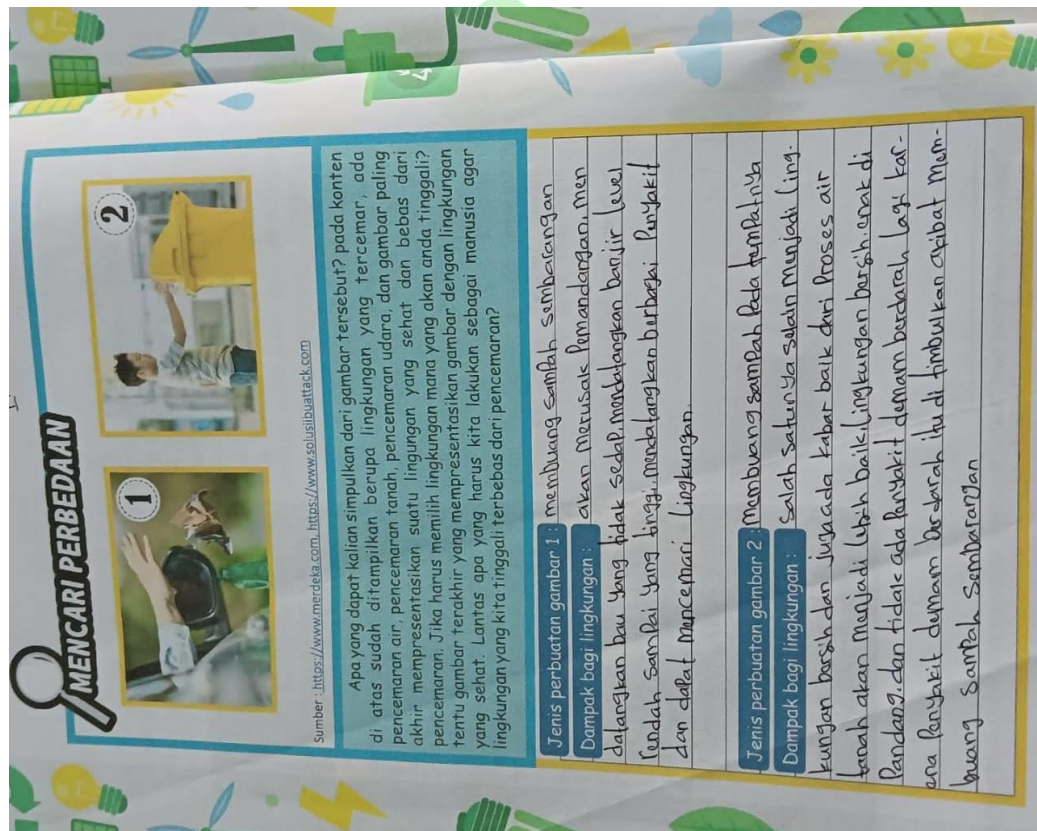 MENCARI PERBEDAAN
1
2
Sumber : https://www.merdeka.com, https://www.solusiibuattack.com
Apa yang dapat kalian simpulkan dari gambar tersebut? pada konten
di atas sudah ditampilkan berupa lingkungan yang tercemar, ada
pencemaran air, pencemaran tanah, pencemaran udara, dan gambar paling
akhir mempresentasikan suatu lingungan yang sehat dan bebas dari
pencemaran. Jika harus memilih lingkungan mana yang akan anda tinggali?
tentu gambar terakhir yang mempresentasikan gambar dengan lingkungan
yang sehat. Lantas apa yang harus kita lakukan sebagai manusia agar
lingkungan yang kita tinggali terbebas dari pencemaran?
Jenis perbuatan gambar 1 : membuang sampah sembarangan
Dampak bagi lingkungan : akan merusak Pemandangan, men
datangkan bau yang tidak sedap, mendatangkan banjir level
rendah sampai yang tinggi, mendatangkan berbagai Penyakit
dan dapat mencemari lingkungan.
Jenis perbuatan gambar 2 : Membuang sampah Pada tempatnya
Dampak bagi lingkungan : Salah satunya selain menjadi ling-
kungan bersih dan juga ada kabar baik dari Proses air
tanah akan menjadi lebih baik, lingkungan bersih enak di
Pandang, dan tidak ada Penyakit demam berdarah lagi kar-
ena Penyakit demam berdarah itu di timbulkan akibat mem-
buang sampah sembarangan